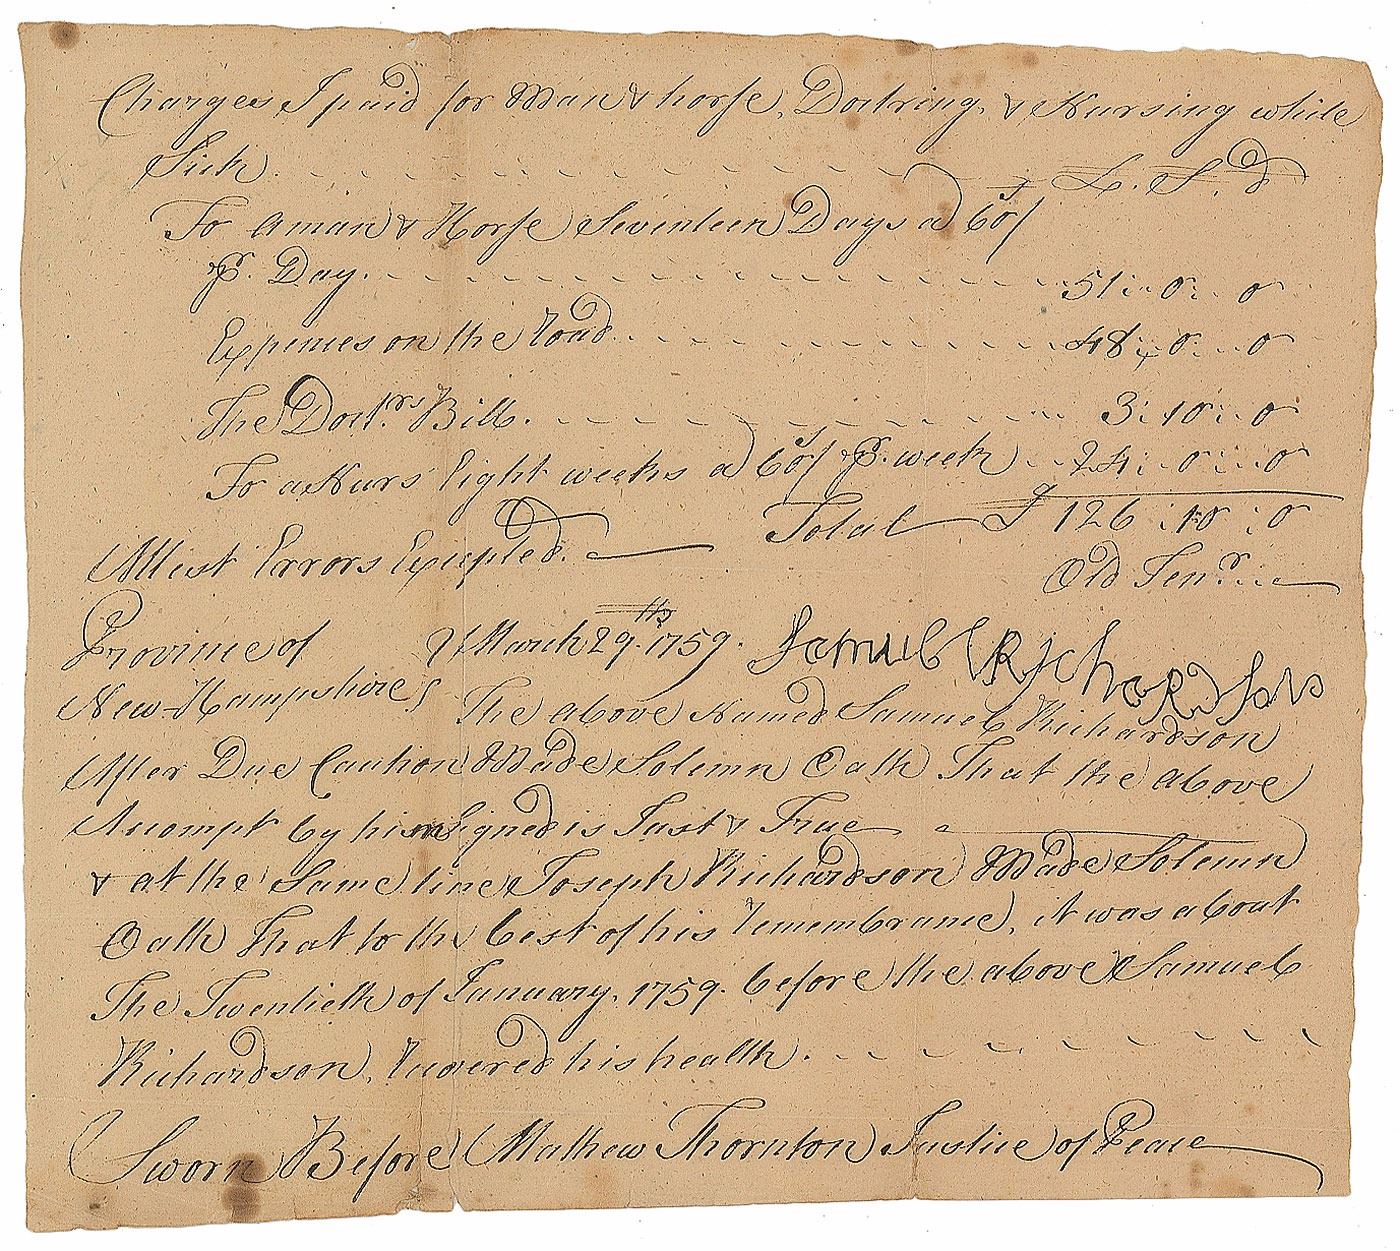 Charges I paid for Man & horse, Doctring, & Nursing while
Sick. L. S. d
To a man & Horse Seventeen Days a 60/
Pr. Day. 51 : 0 : 0
Expences on the road 48 : 0 : 0
The Doctrs Bill. 3 : 10 : 0
To a Nurs Eight weeks a 60/ Pr. week 24 : 0 : 0
Total £ 126 : 10 : 0
Attest Errors Excepted. Old Tenr.
Province of } March 29th 1759. Samuel Richardson
New-Hampshire } The above Named Samuel Richardson
After Due Caution Made Solemn Oath That the above
Accompt by him Signed is Just & True
& at the Same time Joseph Richardson Made Solemn
Oath That to the best of his remembrance, it was about
The Twentieth of January, 1759. before the above Samuel
Richardson, recovered his health.
Sworn Before Mathew Thornton Justice of Peace